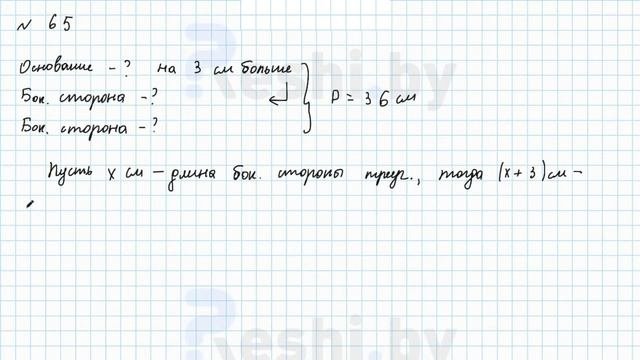 № 65
Основание - ? на 3 см больше
Бок. сторона - ?
Бок. сторона - ?
P = 36 см
Пусть x см - длина бок. стороны треуг., тогда (x + 3) см -
Reshi.by
Reshi.by